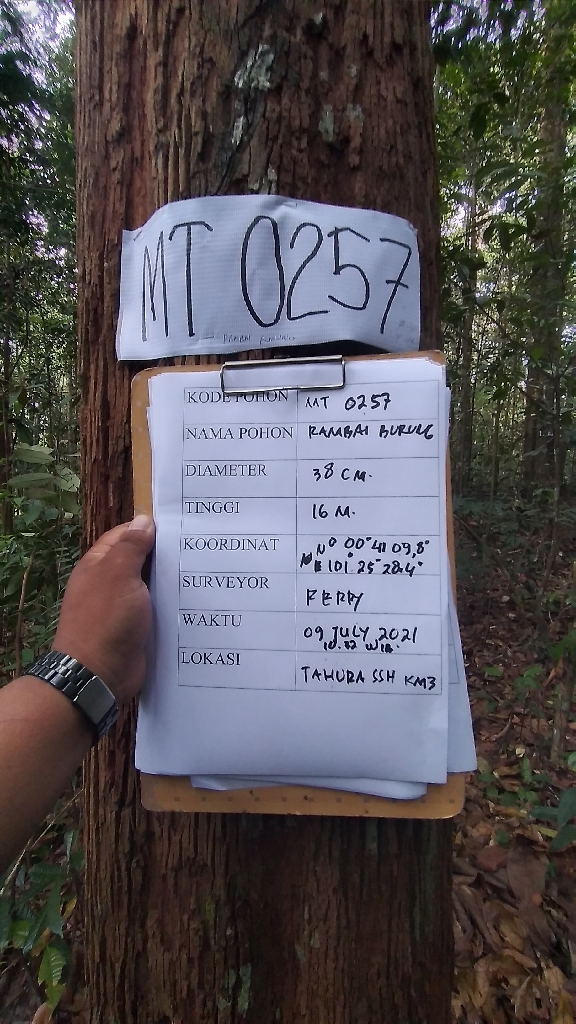 MT 0257
RAMBAI BURUNG
KODE POHON MT 0257
NAMA POHON RAMBAI BURUNG
DIAMETER 38 CM.
TINGGI 16 M.
KOORDINAT N 0° 00° 41 09,8"
E 101. 25° 28.4"
SURVEYOR FERRY
WAKTU 09 JULY 2021
10.32 WIB.
LOKASI TAHURA SSH KM3